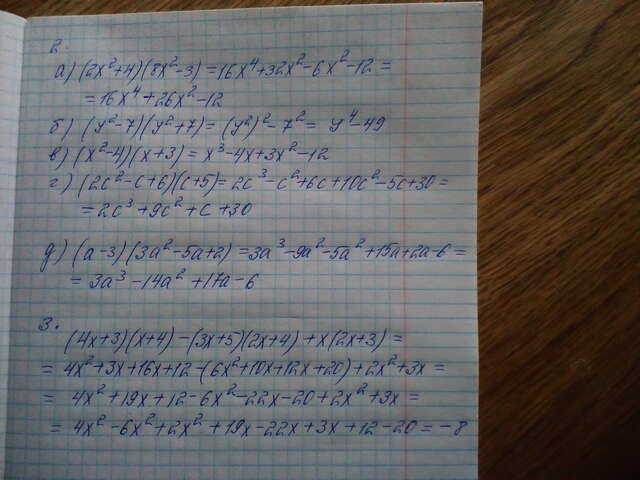 2.
а) (2x²+4)(8x²-3) = 16x⁴+32x²-6x²-12 =
= 16x⁴+26x²-12
б) (y²-7)(y²+7) = (y²)²-7² = y⁴-49
в) (x²-4)(x+3) = x³-4x+3x²-12
г) (2c²-c+6)(c+5) = 2c³-c²+6c+10c²-5c+30 =
= 2c³+9c²+c+30
д) (a-3)(3a²-5a+2) = 3a³-9a²-5a²+15a+2a-6 =
= 3a³-14a²+17a-6
3.
(4x+3)(x+4)-(3x+5)(2x+4)+x(2x+3) =
= 4x²+3x+16x+12-(6x²+10x+12x+20)+2x²+3x =
= 4x²+19x+12-6x²-22x-20+2x²+3x =
= 4x²-6x²+2x²+19x-22x+3x+12-20 = -8